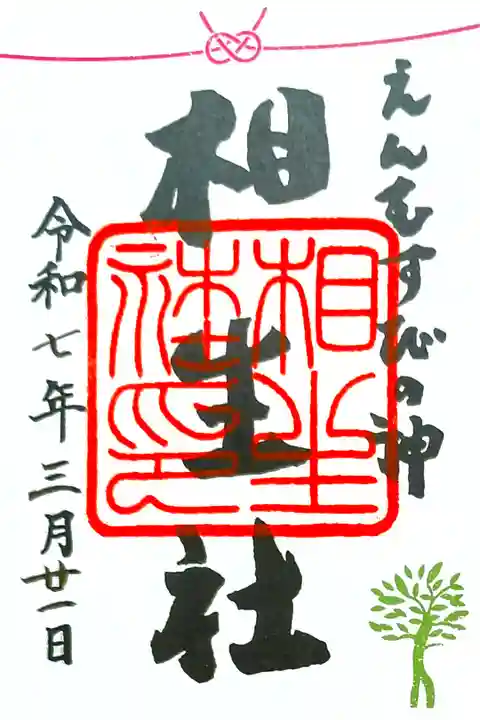 えんむすびの神
相生社
相生
社印
令和七年三月廿一日